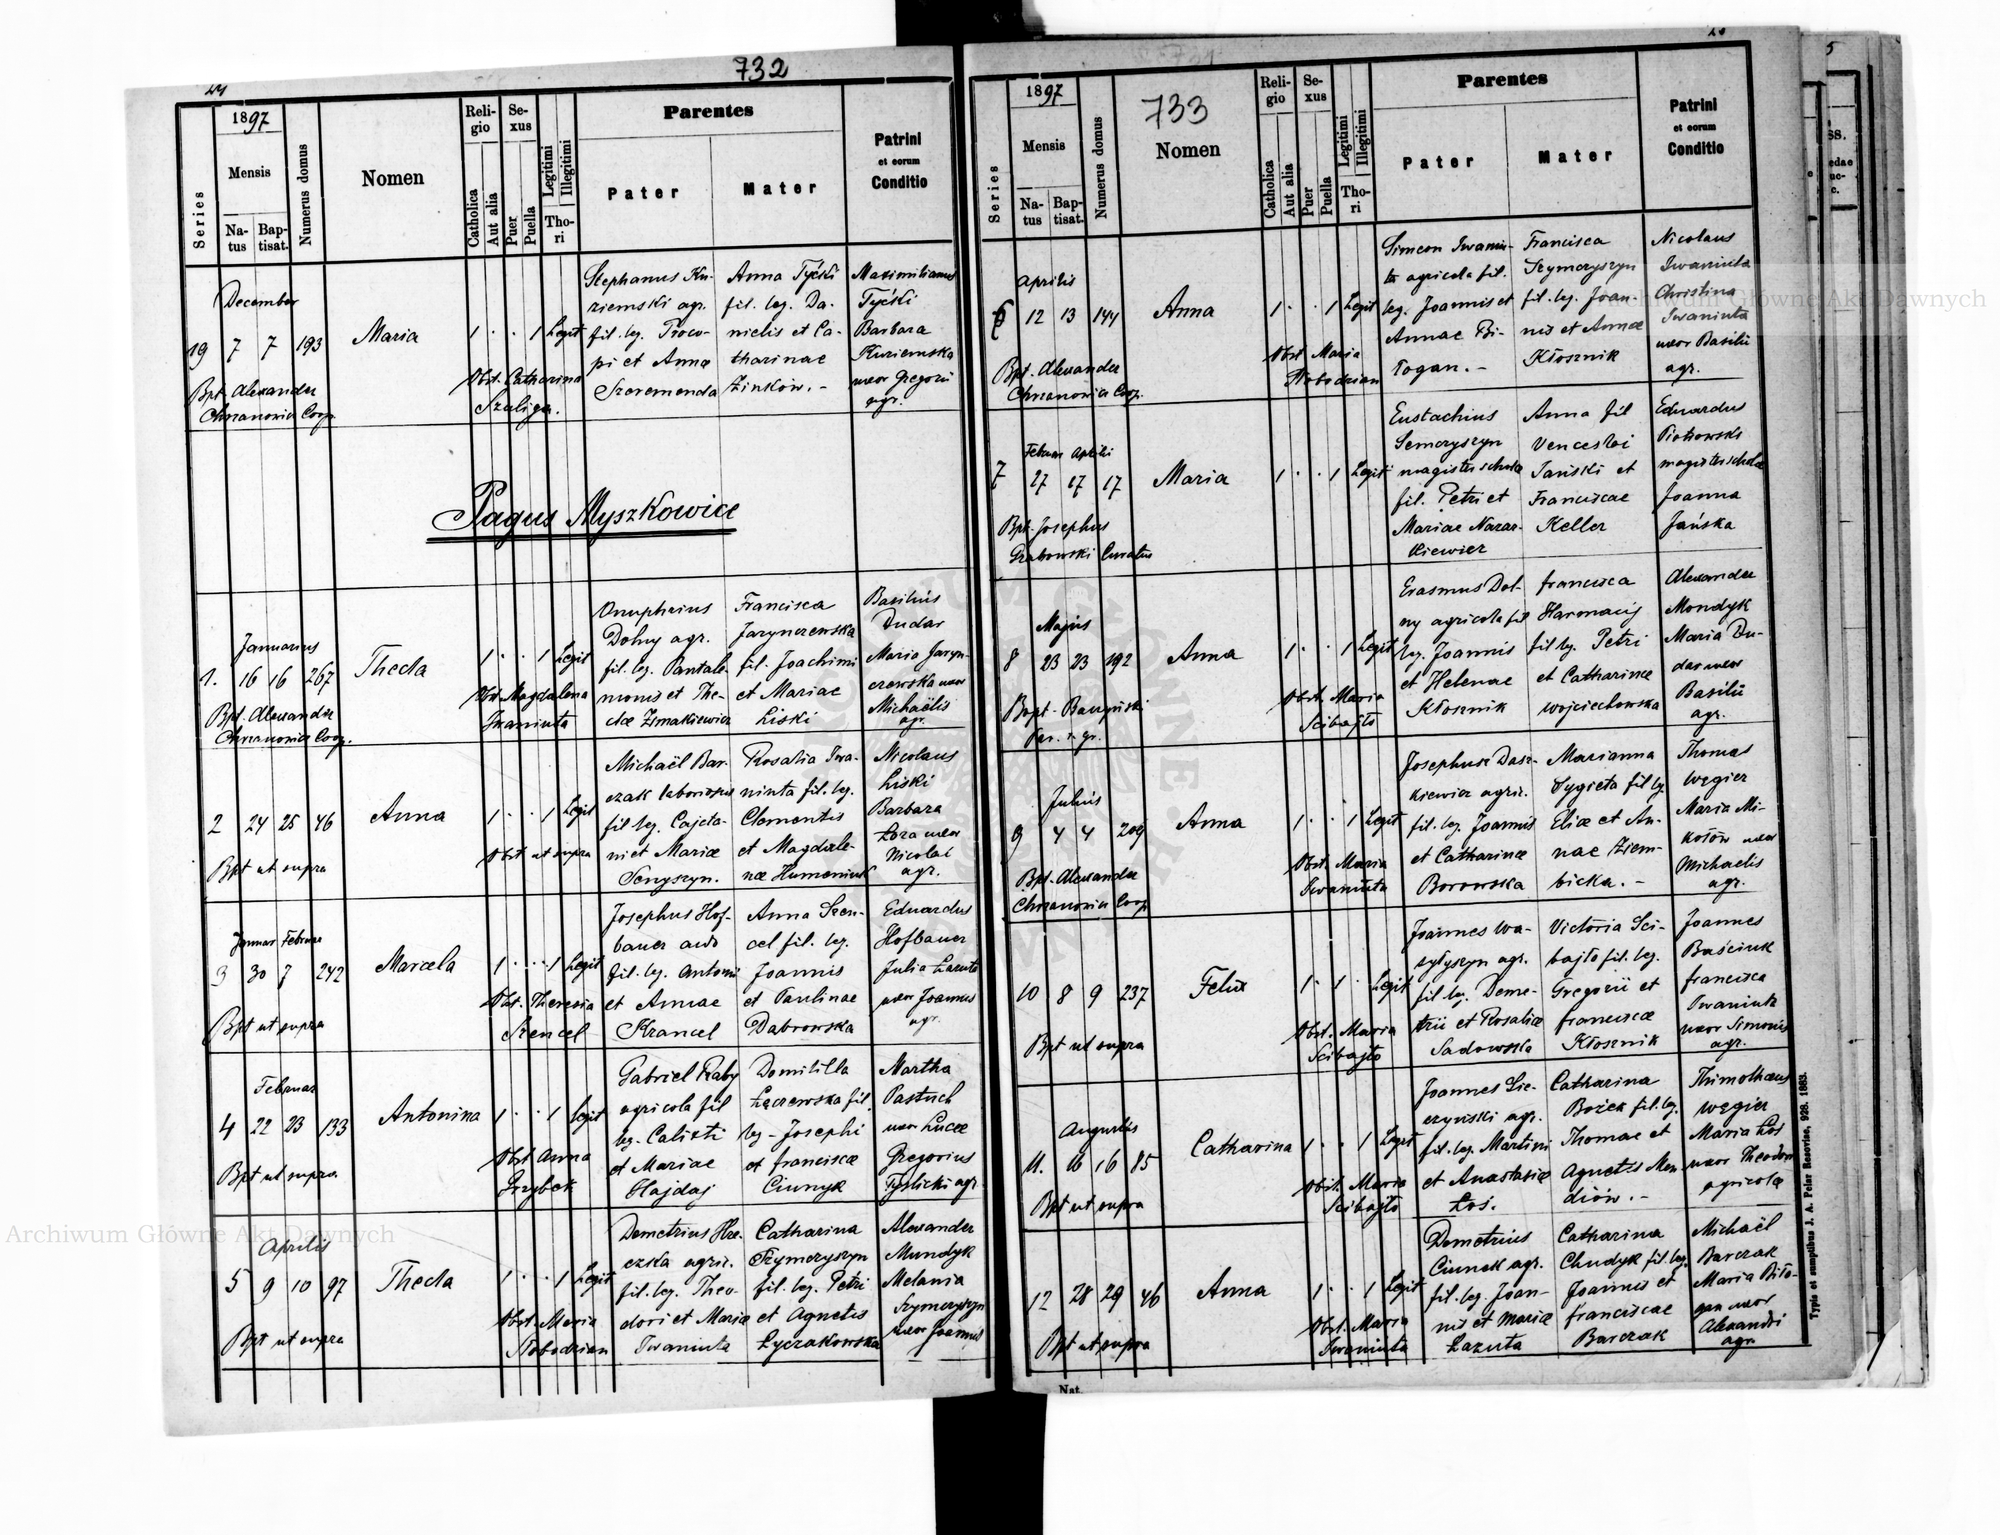 732
24
1897
Series
Mensis
Natus
Baptisat.
Numerus domus
Nomen
Religio
Catholica
Aut alia
Sexus
Puer
Puella
Legitimi
Illegitimi
Thori
Parentes
Pater
Mater
Patrini
et eorum
Conditio
December
19 7 7 193
Maria
1 · · 1 Legit
Bpt. Alexander
Chrzanowicz Coop.
Obst. Catharina
Szeliga.
Stephanus Ku-
ziemski agr.
fil. leg. Proco-
pi et Anna
Szeremenda
Anna Tyćski
fil. leg. Da-
nielis et Ca-
tharinae
Zinków. -
Maximilianus
Tyćski
Barbara
Kuziemska
uxor Gregorii
agr.
Pagus Myszkowice
Januarius
1. 16 16 267
Thecla
1 · · 1 Legit
Bpt. Alexander
Chrzanowicz Coop.
Obst. Magdalena
Iwaniuta
Onuphrius
Dolny agr.
fil. leg. Pantale-
monis et The-
clae Zimakiewicz
Francisca
Jarynczewska
fil. Joachimi
et Mariae
Liski
Basilius
Dudar
Maria Jaryn-
czewska uxor
Michaëlis
agr.
2 24 25 46
Anna
1 · · 1 Legit
Bpt ut supra
Obst ut supra
Michaël Bar-
czak laboriosus
fil leg. Cajeta-
ni et Mariae
Senyszyn.
Rosalia Iwa-
ninta fil. leg.
Clementis
et Magdale-
nae Humeniuk
Nicolaus
Liski
Barbara
Łoza uxor
Nicolai
agr.
Januar Februar
3 30 7 242
Marcela
1 · · 1 Legit
Bpt ut supra
Obst. Theresia
Szencel
Josephus Hof-
bauer
fil. leg. Antoni
et Annae
Krancel
Anna Szen-
cel fil. leg.
Joannis
et Paulinae
Dabrowska
Eduardus
Hofbauer
Julia Łazuta
uxor Joannis
agr.
Februar
4 22 23 133
Antonina
1 · · 1 Legit
Bpt ut supra
Obst Anna
Grzybek
Gabriel Raby
agricola fil
leg. Calixti
et Mariae
Hajdaj
Domitilla
Łączewska fil.
leg - Josephi
et franciscae
Ciunyk
Martha
Pastuch
uxor Lucae
Gregorius
Tyslicki agr.
Aprilis
5 9 10 97
Thecla
1 · · 1 Legit
Bpt ut supra
Obst. Maria
Słobodzian
Demetrius Hre-
czka agric.
fil. leg. Theo-
dori et Mariae
Iwaniuta
Catharina
Szymczyszyn
fil. leg. Petri
et Agnetis
Łyczakowska
Alexander
Mundyk
Melania
Szymczyszyn
uxor Joannis
733
1897
Series
Mensis
Natus
Baptisat.
Numerus domus
Nomen
Religio
Catholica
Aut alia
Sexus
Puer
Puella
Legitimi
Illegitimi
Thori
Parentes
Pater
Mater
Patrini
et eorum
Conditio
Aprilis
6 12 13 144
Anna
1 · · 1 Legit
Bpt. Alexander
Chrzanowicz Coop.
Obst Maria
Słobodzian
Simeon Iwaniu-
ta agricola fil.
leg. Joannis et
Annae Bi-
Togan. -
Francisca
Szymczyszyn
fil. leg. Joan-
nis et Annae
Kłosznik
Nicolaus
Iwaniuta
Christina
Iwaniuta
uxor Basilii
agr.
Februar Aprili
7 27 17 17
Maria
1 · · 1 Legit
Bpt. Josephus
Grabowski Curatus
Eustachius
Semczyszyn
magister scholae
fil. Petri et
Mariae Nazar-
kiewicz
Anna fil
Venceslei
Jański et
Franciscae
Keller
Eduardus
Piotrowski
magister scholae
Joanna
Jańska
Majus
8 23 23 192
Anna
1 · · 1 Legit
Obst. Maria
Scibajło
Erasmus Dol-
ny agricola fil
leg. Joannis
et Helenae
Kłosznik
francisca
Haronacij
fil leg. Petri
et Catharinae
Wojciechowska
Alexander
Mondyk
Maria Du-
dar uxor
Basilii
agr.
Julius
9 4 4 209
Anna
1 · · 1 Legit
Bpt. Alexander
Chrzanowicz Coop
Obst. Maria
Iwaniuta
Josephus Dasz-
kiewicz agric.
fil. leg. Joannis
et Catharinae
Borowska
Marianna
Dygieta fil leg.
Eliae et An-
nae Ziem-
bicka. -
Thomas
Węgier
Maria Mi-
kołów uxor
Michaelis
agr.
10 8 9 237
Felix
1 · 1 · Legit
Bpt ut supra
Obst. Maria
Scibajło
Joannes Wa-
sylyszyn agr.
fil leg. Deme-
trii et Rosaliae
Sadowska
Victoria Sci-
bajło fil. leg.
Gregorii et
franciscae
Kłosznik
Joannes
Baściuk
francisca
Iwaniuta
uxor Simonis
agr.
Augustus
11. 16 16 85
Catharina
1 · · 1 Legit
Bpt ut supra
Obst. Maria
Scibajło
Joannes Sie-
czyński agr.
fil. leg. Martini
et Anastasiae
Łoś.
Catharina
Bożek fil. leg.
Thomae et
Agnetis Men-
diów. -
Thimotheus
Węgier
Maria Łoś
uxor Theodori
agricolae
12 28 29 46
Anna
1 · · 1 Legit
Bpt ut supra
Obst. Maria
Iwaniuta
Demetrius
Ciunek agr.
fil. leg. Joan-
nis et Mariae
Łazuta
Catharina
Chudyk fil. leg.
Joannis et
franciscae
Barczak
Michaël
Barczak
Maria Biło-
gan uxor
Alexandri
agr.
Nat.
Typis et sumptibus J. A. Pelar Resoviae, 928. 1883.
Archiwum Główne Akt Dawnych
Archiwum Główne Akt Dawnych